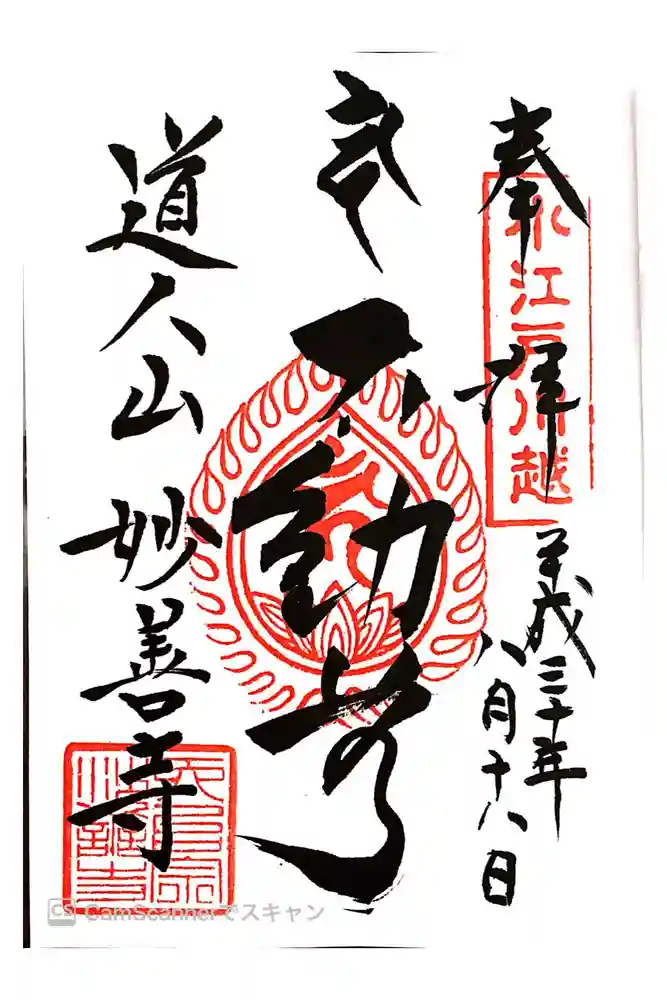 奉拝
小江戸川越
平成三十年
八月十八日
不動尊
道人山 妙善寺
CS CamScannerでスキャン